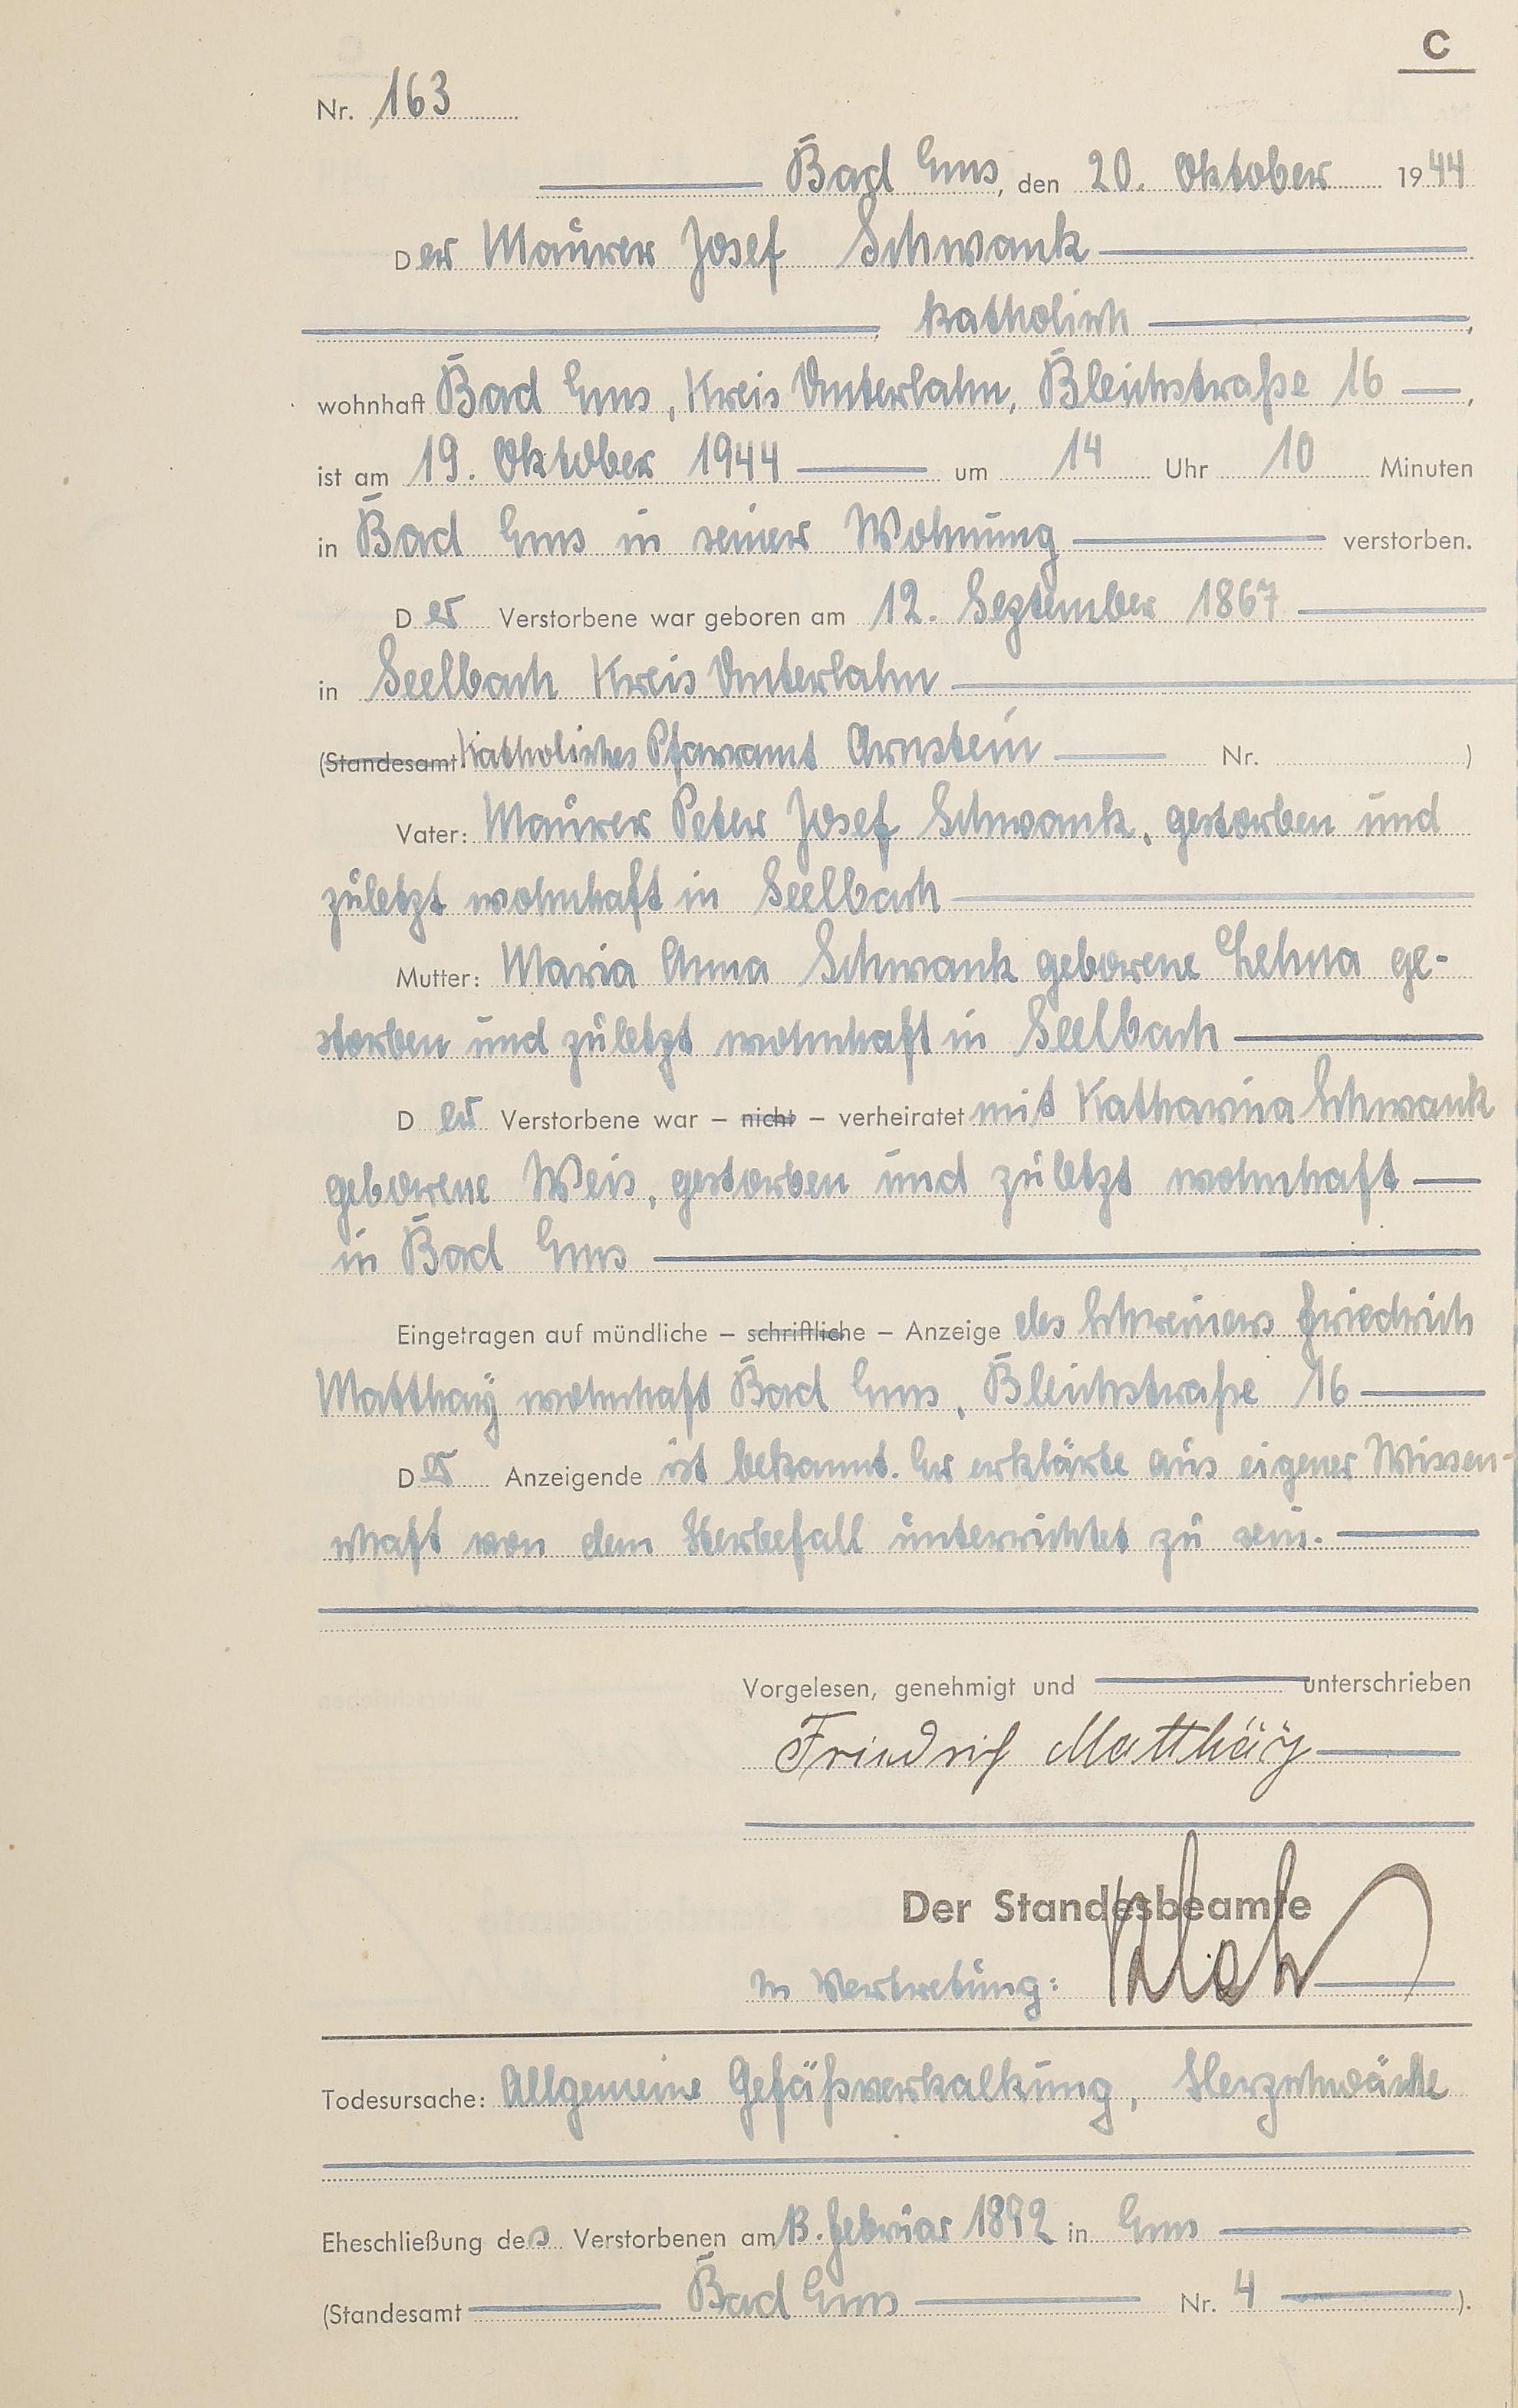 C
Nr. 163
Bad Ems, den 20. Oktober 1944
Der Maurer Josef Schwank
, katholisch ,
wohnhaft Bad Ems, Kreis Unterlahn, Bleichstraße 16 ,
ist am 19. Oktober 1944 um 14 Uhr 10 Minuten
in Bad Ems in seiner Wohnung verstorben.
Der Verstorbene war geboren am 12. September 1867
in Seelbach Kreis Unterlahn
(Standesamt Katholisches Pfarramt Arnstein Nr. )
Vater: Maurer Peter Josef Schwank, gestorben und
zuletzt wohnhaft in Seelbach
Mutter: Maria Anna Schwank geborene Lehna ge-
storben und zuletzt wohnhaft in Seelbach
Der Verstorbene war – nicht – verheiratet mit Katharina Schwank
geborene Weis, gestorben und zuletzt wohnhaft
in Bad Ems
Eingetragen auf mündliche – schriftliche – Anzeige des Schreiners Friedrich
Matthäy wohnhaft Bad Ems, Bleichstraße 16
Der Anzeigende ist bekannt. Er erklärte aus eigener Wissen-
schaft von dem Sterbefall unterrichtet zu sein.
Vorgelesen, genehmigt und unterschrieben
Friedrich Matthäy
Der Standesbeamte
In Vertretung:
Todesursache: Allgemeine Gefäßverkalkung, Herzschwäche
Eheschließung des Verstorbenen am 13. Februar 1892 in Ems
(Standesamt Bad Ems Nr. 4 ).